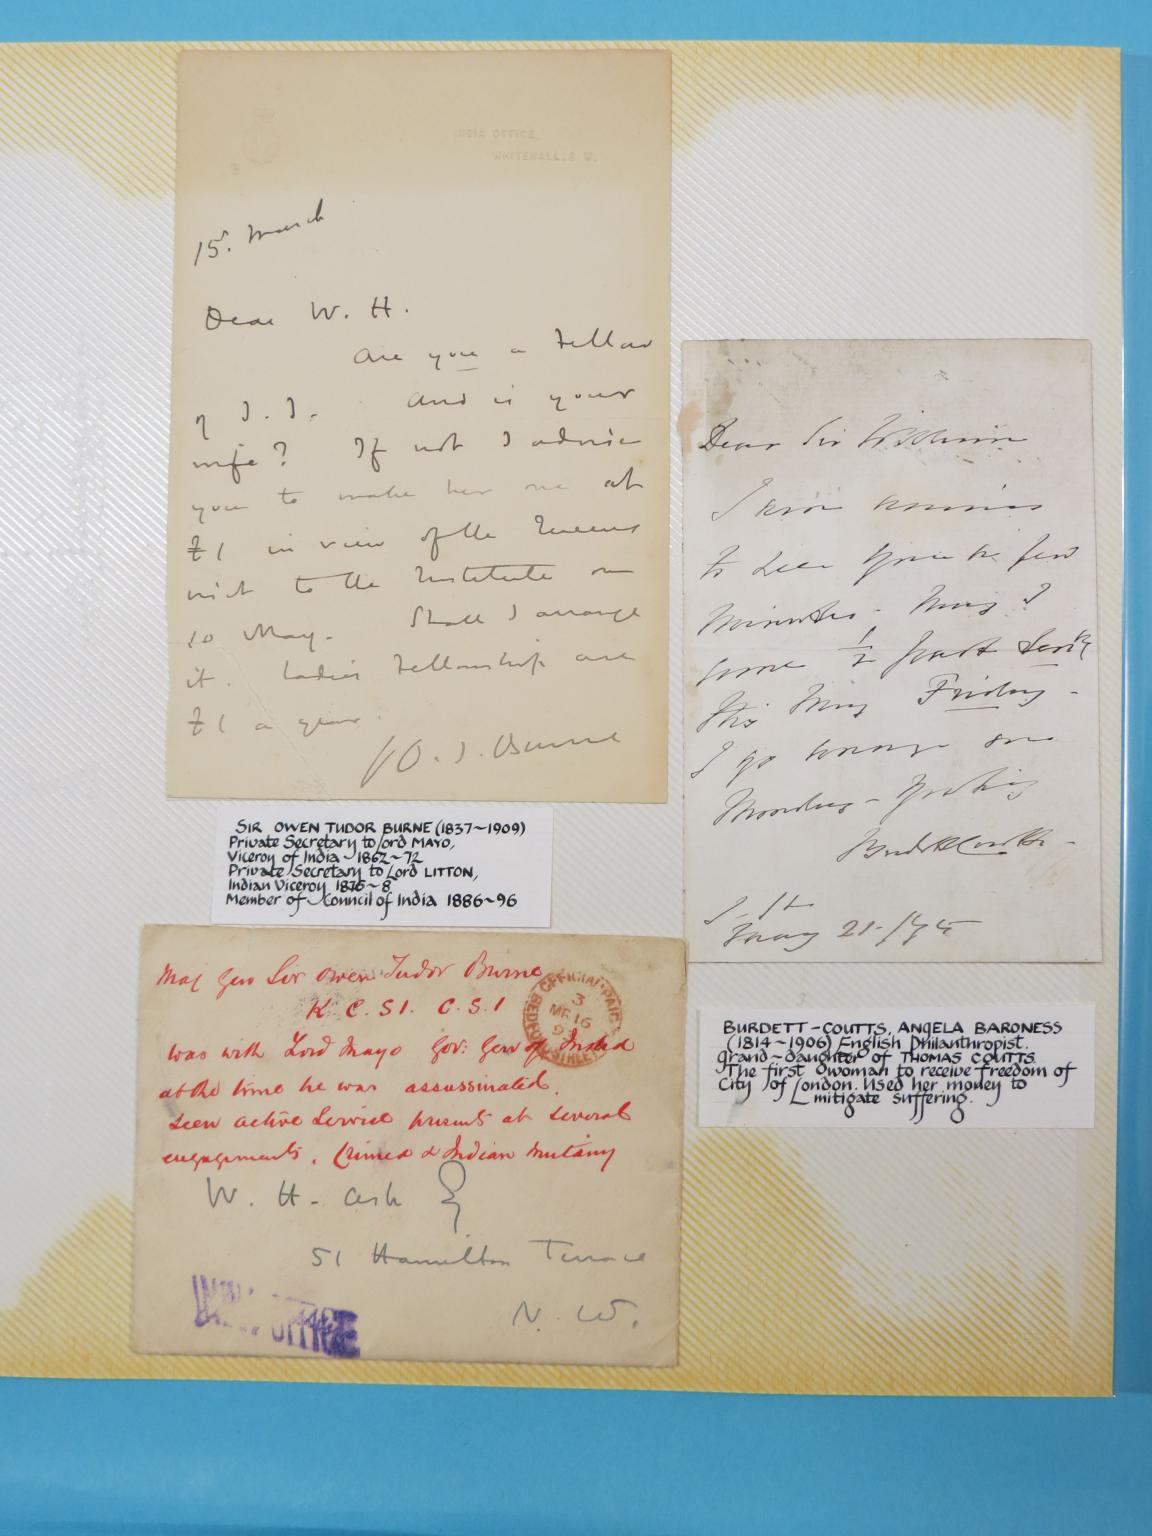 INDIA OFFICE,
WHITEHALL. S. W.
15. March
Dear W. H.
Are you a Fellow
of I. I. And is your
wife? If not I advise
you to make her one at
£1 in view of the Queens
visit to the Institute on
10 May. Shall I arrange
it. Ladies Fellowships are
£1 a year.
O. T. Burne
SIR OWEN TUDOR BURNE (1837~1909)
Private Secretary to Lord MAYO,
Viceroy of India ~ 1862~72
Private Secretary to Lord LITTON,
Indian Viceroy 1876~8
Member of Council of India 1886~96
Maj Gen Sir Owen Tudor Burne
K. C. SI. C. S. I
was with Lord Mayo Gov: Gen of India
at the time he was assassinated.
Seen active Service present at several
engagements. Crimea & Indian Mutiny
OFFICIAL PAID
3
16
W. H. Ash Esq
51 Hamilton Terrace
N. W.
INDIA OFFICE
Dear Sir William
I am anxious
to see you a few
minutes - May I
come ½ past
this Friday -
I go away on
Monday -
Burdett Coutts
21
BURDETT-COUTTS, ANGELA BARONESS
(1814~1906) English Philanthropist.
Grand~daughter of THOMAS COUTTS
The first woman to receive freedom of
City of London. Used her money to
mitigate suffering.